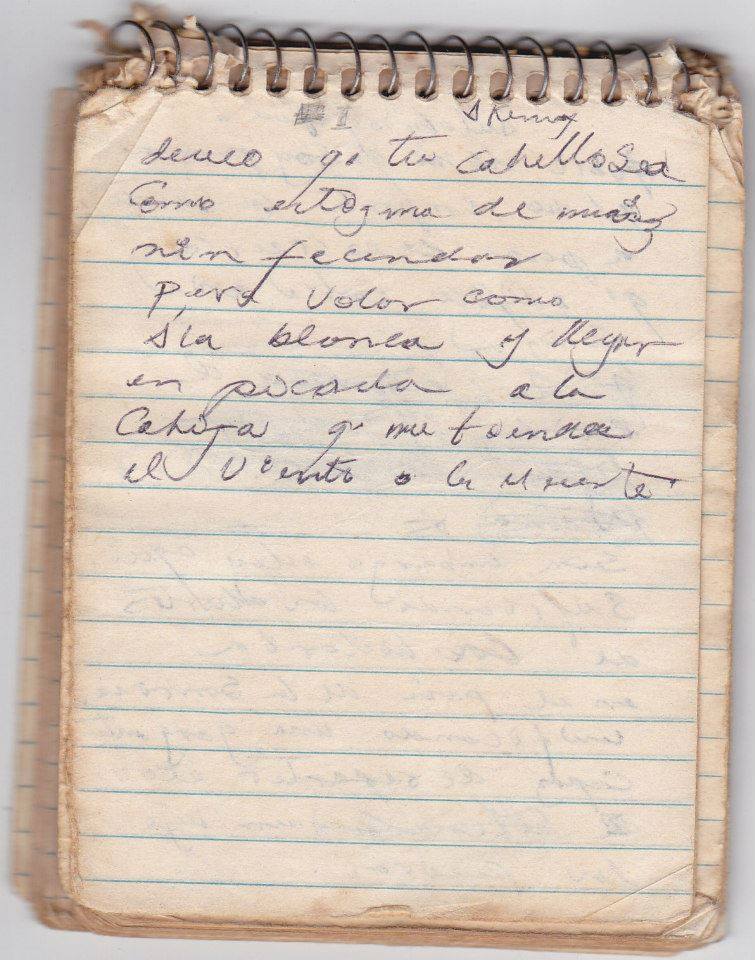 # 1
deseo q. tu cabello sea
como estogma de maiz
sin fecundar
para volar como
ala blanca y llegar
en picada a la
q. me tienda
el viento o la muerte